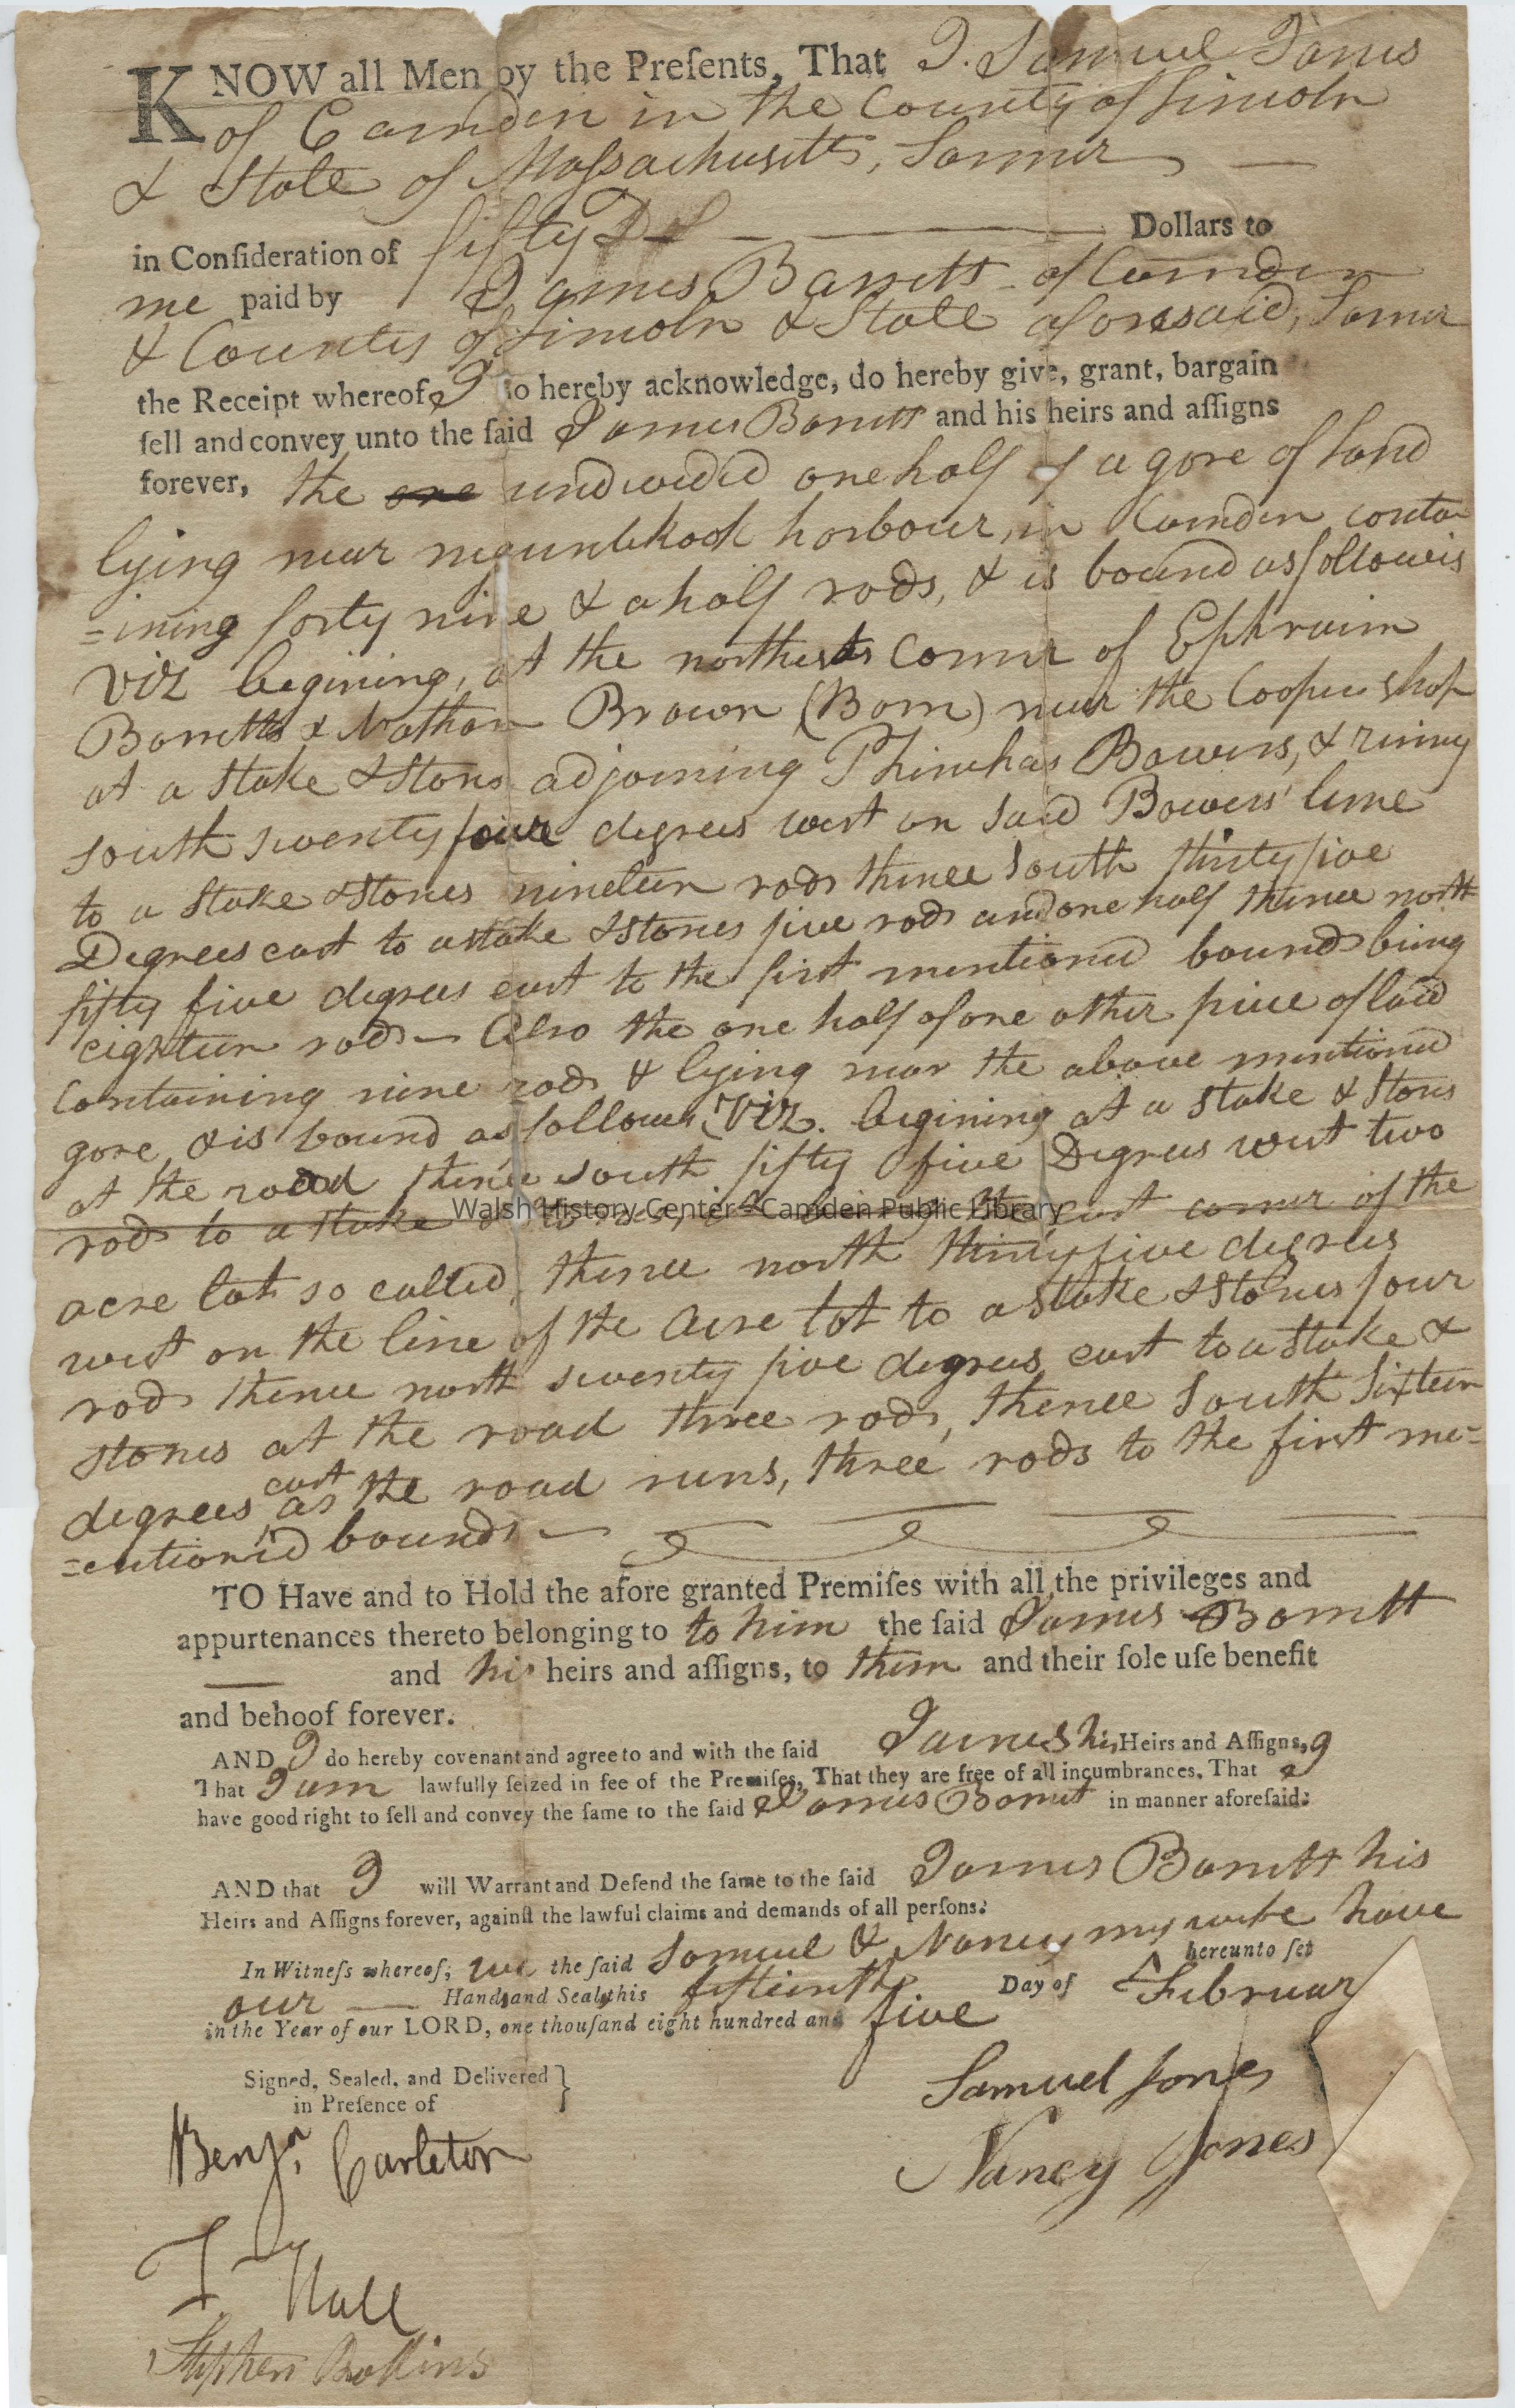 KNOW all Men by the Preſents, That I. Samuel Jones
of Camden in the County of Lincoln
& State of Massachusetts, Farmer
in Conſideration of fifty Dol Dollars to
me paid by James Barrett of Camden
& County of Lincoln & State aforesaid, Farmer
the Receipt whereof I do hereby acknowledge, do hereby give, grant, bargain
ſell and convey unto the ſaid James Barrett and his heirs and aſſigns
forever, the one undivided one half of a gore of land
lying near neguntikook harbour, in Camden conta
=ining forty nine & a half rods, & is bound as followis
viz begining, at the northests Corner of Ephraim
Barretts & Nathan Brown (Barn) near the Cooper shop
at a stake & Stons adjoining Phinehas Bowers, & runing
south seventy four degrees west on said Bowers' line
to a Stake & Stones nineteen rods thence South thirty five
Degrees east to a stake & Stones five rods and one half thence north
fifty five degrees east to the first mentioned bounds being
eighteen rods — Also the one half of one other piece of land
Containing nine rods & lying near the above mentioned
gore, & is bound as follows, Viz. begining at a stake & Stons
at the road thence south fifty five Degrees west two
rods to a stake & stones, the east corner of the
Walsh History Center - Camden Public Library
acre lot so called, thence north thirty five degrees
west on the line of the acre lot to a stake & Stones four
rods thence north seventy five degrees east to a stake &
stones at the road three rods, thence South Sixteen
degrees east as the road runs, three rods to the first me=
=entioned bounds —
TO Have and to Hold the afore granted Premiſes with all the privileges and
appurtenances thereto belonging to to him the ſaid James Barrett
and his heirs and aſſigns, to them and their ſole uſe benefit
and behoof forever.
AND I do hereby covenant and agree to and with the ſaid James his Heirs and Aſſigns,
That I am lawfully ſeized in fee of the Premiſes, That they are free of all incumbrances, That I
have good right to ſell and convey the ſame to the ſaid James Barrett in manner aforeſaid:
AND that I will Warrant and Defend the ſame to the ſaid James Barrett his
Heirs and Aſſigns forever, againſt the lawful claims and demands of all perſons.
In Witneſs whereof, we the ſaid Samuel & Nancy my wife have hereunto ſet
our Hands and Seals this fifteenth Day of February
in the Year of our LORD, one thouſand eight hundred and five
Signed, Sealed, and Delivered }
in Preſence of
Samuel Jones
Benjn. Carleton
Nancy Jones
Hall
Stephen